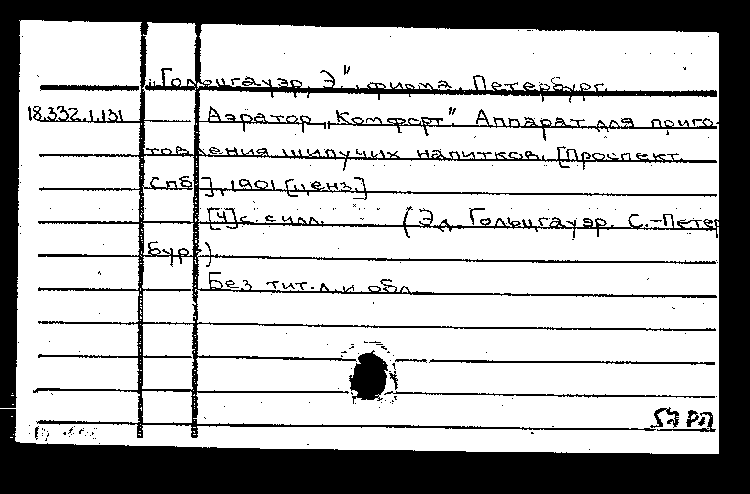 „Гольцгауэр, Э", фирма, Петербург.
18.332.1.131 Аэратор „Комфорт". Аппарат для приго-
товления шипучих напитков. [Проспект.
Спб.], 1901 [ценз.]
[4] с. с илл. (Эд. Гольцгауэр. С.-Петер
бург).
Без тит. л. и обл.
57 РП